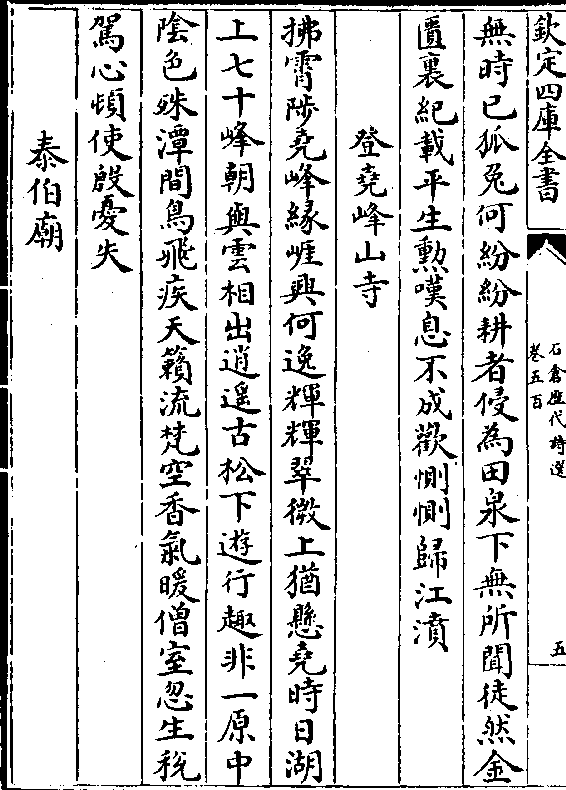 欽定四庫全書
石倉歷代詩選
卷五百
五
無時已狐兔何紛紛耕者侵為田泉下無所聞徒然金
匱裏紀載平生勲嘆息不成歡惻惻歸江濆
登堯峰山寺
拂霄陟堯峰緣崕興何逸輝輝翠微上猶懸堯時日湖
上七十峰朝與雲相出逍遥古松下遊行趣非一原中
陰色殊潭間鳥飛疾天籟流梵空香氣暖僧室忽生稅
駕心頓使殷憂失
泰伯廟